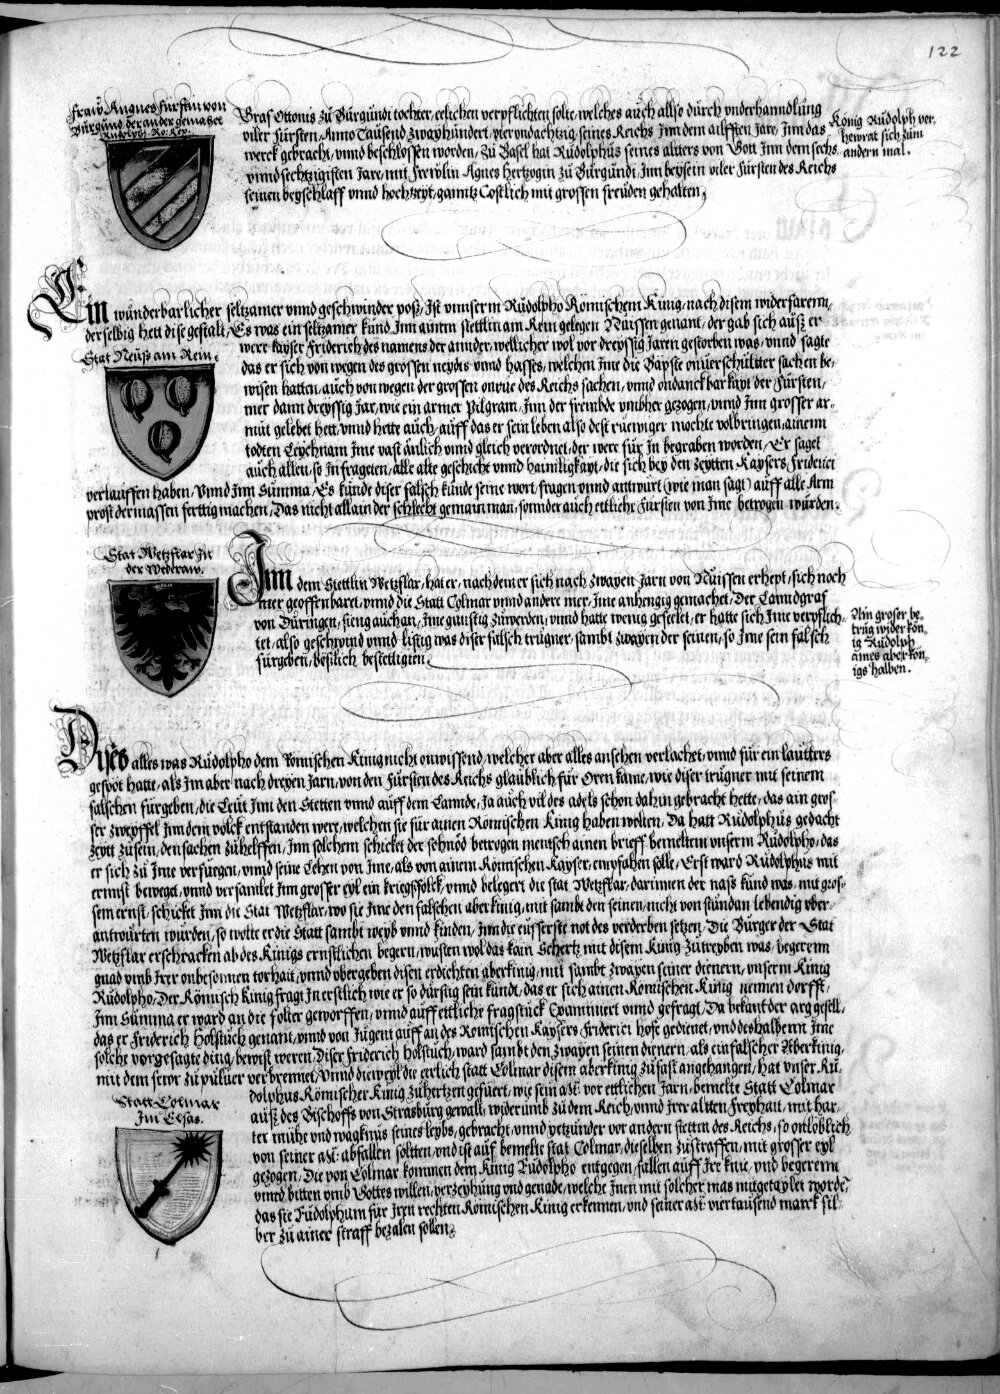 122
Fraw Angnes Fürstin von
Burgund, der ander gemahel
Rudolphj Ro: Key.
Graf Ottonis zů Burgundi tochter, eelichen verpflichten solte, welches auch allso durch vnderhanndlung
viler Fürsten, Anno Tausend zwayhundert, vierundachtzig, seines Reichs Jm dem ailfften Jare, Jnn das
werck gebracht, vnnd beschlossen worden, Zů Basel hat Rudolphus seines alters von Gott Jnn dem sechs
vnnd sechtzigisten Jare, mit Frewlin Agnes Hertzogin zů Burgundi, Jnn beysein viler Fürsten des Reichs
seinen beyschlaff vnnd hochtzeyt, ganntz Costlich mit grossen freuden gehalten.
König Rudolph ver,
heyrat sich zum
andern mal.
Ein wunderbarlicher seltzamer vnnd geschwinder poß, Jst vnnserm Rudolpho Römischem Kunig, nach disem widerfarenn,
derselbig hett dise gestalt, Es was ein seltzamer kund Jnn ainem stettlin am Rein gelegen Nüissen genant, der gab sich auß er
Stat Neüß am Rein.
were kayser Friderich des namens der annder, wellicher wol vor dreyssig Jaren gestorben was, vnnd sagte
das er sich von wegen des grossen neyds vnnd hasses, welchen Jme die Bäpste onuerschultter sachen be,
wisen hatten, auch von wegen der grossen onrüe des Reichs sachen, vnnd ondanckbarkayt der Fürsten,
mer dann dreyssig Jar, wie ein armer Pilgram, Jnn der frembde vmbher gezogen, vnnd Jnn grosser ar,
mut gelebet hett, vnnd hette auch, auff das er sein leben also dest rüewiger mochte volbringen, ainem
todten Leychnam Jme vast änlich vnnd gleich verordnet, der were für Jn begraben worden, Er saget
auch allen, so Jn frageten, alle alte geschicht vnnd haimligkayt, die sich bey den zeytten Kaysers Friderici
verlauffen haben, Vnnd Jnn Summa, Es kunde diser falsch kunde seine wort, fragen vnnd antwurt (wie man sagt) auff alle Arm
prost dermassen ferttig machen, Das nicht allain der schlecht gemain man, sonnder auch ettlicht Fürsten von Jme betrogen wurden.
Stat Wetzflar Jn
der Wederaw.
Jnn dem Stettlin Wetzflar, hat er, nach dem er sich nach zwayen Jarn von Nüissen erhept, sich noch
mer geoffenbaret, vnnd die Statt Colmar vnnd andere mer, Jme anhengig gemachet, Der Lanndgraf
von Düringen, fieng auch an, Jme günstig zuwerden, vnnd hatte wenig gefeelet, er hatte sich Jme verpflich,
tet, also geschwind vnnd listig was diser falsch trugner, sambt zwayen der seinen, so Jme sein falsch
fürgeben, böslich bestettigten.
Ain groser be,
trug wider kön,
ig Rudolph
aines aber kön,
igs halben.
Dises alles was Rudolpho dem Römischen Kunig nicht onwissend, welcher aber alles ansehen verlachet, vnnd für ein lautters
gespöt hatte, als Jm aber nach dreyen Jarn, von den Fürsten des Reichs glaublich für Oren kame, wie diser trugner mit seinem
falschen fürgeben, die Leüt Jnn den Stetten vnnd auff dem Lannde, Ja auch vil des adels schon dahin gebracht hette, das ain gros,
ser zweyffel Jnn dem volck entstanden were, welchen sie für ainen Römischen Kinig haben wolten, Da hatt Rudolphus gedacht
zeytt zusein, den sachen zuhelffen, Jnn solchem schicket der schnöd betrogen mentsch ainen brieff bemeltem vnserm Rudolpho, das
er sich zu Jme verfuegen, vnnd seine Lehen von Jme, als von ainem Römischen Kayser, empfahen solle, Erst ward Rudolphus mit
ernnst beweget, vnnd versamlet Jnn grosser eyl ein kriegsfolck, vnnd belegert die stat Wetzflar, darinnen der naß kund was, mit gros,
sem ernst, schicket Jnn die Stat Wetzflar, wo sie Jme den falschen aberkinig, mit sambt den seinen, nicht von stundan lebendig vber,
antwurten wurden, so wolte er die Statt sambt weyb vnnd kinden, Jnn die eusserste not des verderben setzen, Die Burger der Stat
Wetzflar erschracken ab des Kinigs ernstlichen begern, wusten wol das kain Schertz mit disem Kinig zutreyben was, begerenn
gnad vmb Jrer onbesonnen torhait, vnnd vbergeben disen erdichten aberkinig, mit sambt zwayen seiner dienern, vnserm Kinig
Rudolpho, Der Römisch Kinig fragt Jn erstlich wie er so dürstig sein kündt, das er sich ainen Römischen Kinig nennen dorfft,
Jnn Summa er ward an die folter geworffen, vnnd auff ettlicht fragstuck Examiniert vnnd gefragt, Da bekant der arg gesell,
das er Friderich Holstuch genant, vnnd von Jugent auff an des Romischen Kaysers Friderici hofe gedienet, vnd deshalbenn Jme
solche vorgesagte ding, bewist weren, Diser Friderich holstuch, ward sambt den zwayen seinen dienern, als ein falscher Aberkinig,
mit dem fewr zu puluer verbrennet, Vnnd dieweyl die eerlich statt Colmar disem aberkinig zusatz angehangen, hat vnser Ru,
Statt Colmar
Jm Elsas.
dolphus Römischer Kinig zuhertzen gefuert, wie sein Mt: vor ettlichen Jarn, bemelte Statt Colmar
auß des Bischoffs von Strasburg gewalt, widerumb zu dem Reich, vnnd Jrer altten Freyhait, mit har,
ter mühe vnd wagknus seines leybs, gebracht, vnnd yetzunder vor andern stetten des Reichs, so onloblich
von seiner Mt: abfallen soltten, vnd ist auf bemelte stat Colmar, dieselben zustraffen, mit grosser eyl
gezogen, Die von Colmar kommen dem Kinig Rudolpho entgegen, fallen auff Jre knie, vnd begerenn
vnnd bitten vmb Gottes willen, verzeyhung vnd genade, welche Jnen mit solcher mas mitgetaylet worde,
das sie Rudolphum für Jren rechten Römischen Kinig erkennen, vnd seiner Mt: viertausend marck sil,
ber zu ainer straff bezalen sollen.